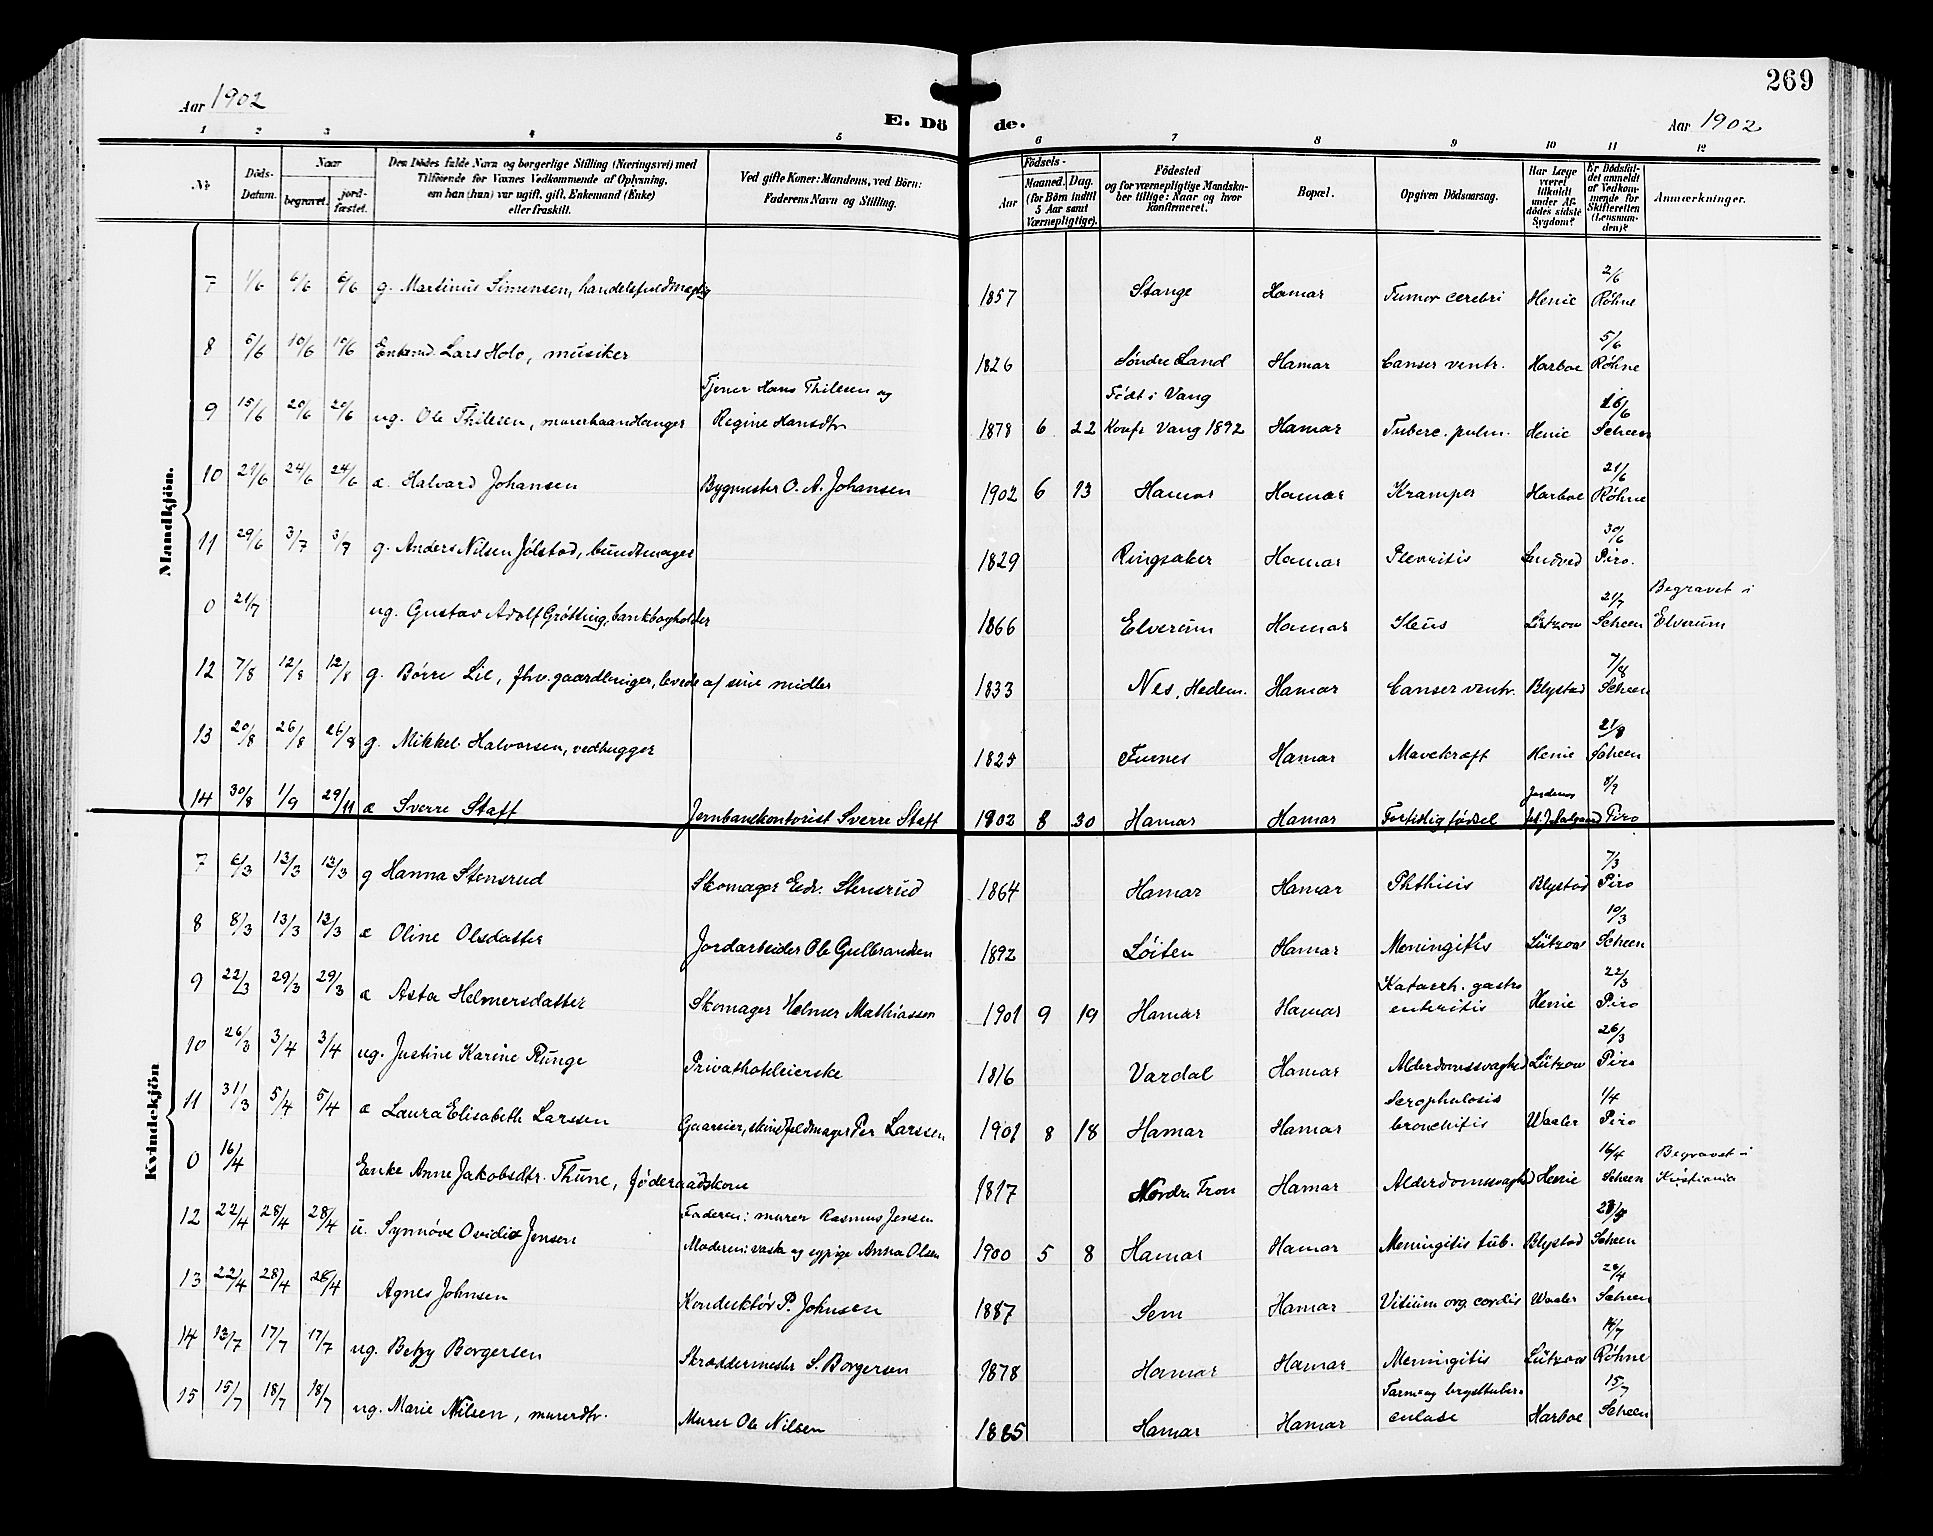 269
Aar 1902
E. Dö de.
Aar 1902
1 2 3 4 5 6 7 8 9 10 11 12
No
Döds-Datum.
Naar
begravet.
jordfæstet.
Den Dödes fulde Navn og borgerlige Stilling (Næringsvei) med
Tilföiende for Voxnes Vedkommende af Oplysning,
om han (hun) var ugift, gift, Enkemand (Enke)
eller fraskilt.
Ved gifte Koner: Mandens, ved Börn:
Faderens Navn og Stilling.
Födsels-
Aar
Maaned. Dag.
(for Börn indtil
5 Aar samt
Værnepligtige).
Födested
og for værnepligtige Mandskaber tillige: Naar og hvor
konfirmeret.
Bopæl.
Opgiven Dödsaarsag.
Har Læge
været
tilkaldt
under Afdödes sidste
Sygdom?
Er Dödsfaldet anmeldt
af Vedkommende for
Skifteretten
(Lensmanden)?
Anmærkninger.
Mandkjön.
7 1/6 6/6 6/6 g. Martinus Simensen, handelsfuldmægtig 1857 Stange Hamar Tumor cerebri Henie 2/6 Röhne
8 5/6 10/6 10/6 Enkemd. Lars Holo, musiker 1826 Søndre Land Hamar Canser ventr. Harboe 5/6 Röhne
9 15/6 20/6 20/6 ug. Ole Thilesen, murerhaandlanger Tjener Hans Thilesen og
Regine Hansdtr 1878 6 22 Födt i Vang
Konfr Vang 1892 Hamar Tuberc. pulm. Henie 16/6 Scheen
10 21/6 24/6 24/6 æ. Halvard Johansen Bygmester O. A. Johansen 1902 6 13 Hamar Hamar Kramper Harboe 21/6 Röhne
11 29/6 3/7 3/7 g. Anders Nilsen Jølstad, bundtmager 1829 Ringsaker Hamar Plevritis Sandved 30/6 Piro.
0 21/7 ug. Gustav Adolf Grøtting, bankbogholder 1866 Elverum Hamar Ileus Lützow 21/7 Scheen Begravet i
Elverum
12 7/8 12/8 12/8 g. Børre Lie, fhv. gaardbruger, levede af sine midler 1833 Nes, Hedem. Hamar Canser ventr. Blystad 7/8 Scheen
13 20/8 26/8 26/8 g. Mikkel Halvorsen, vedhugger 1825 Furnes Hamar Mavekræft Henie 21/8 Scheen
14 30/8 1/9 29/11 æ Sverre Staff Jernbanekontorist Sverre Staff 1902 8 30 Hamar Hamar Fortidlig fødsel Jordmor Piro
Kvindekjön
7 6/3 13/3 13/3 g Hanna Stensrud Skomager Edv. Stensrud 1864 Hamar Hamar Phthisis Blystad 7/3 Piro
8 8/3 13/3 13/3 æ Oline Olsdatter Jordarbeider Ole Gulbrandsen 1892 Løiten Hamar Meningitis Lützow 10/3 Scheen
9 22/3 29/3 29/3 æ Asta Helmersdatter Skomager Helmer Mathiassen 1901 9 19 Hamar Hamar Katarrh. gastro
enteritis Henie 22/3 Piro
10 26/3 3/4 3/4 ug. Justine Karine Runge Privathoteleierske 1816 Vardal Hamar Alderdomssvaghed Lützow 26/3 Piro
11 31/3 5/4 5/4 æ Laura Elisabeth Larssen Gaareier, skindfeldmager Per Larssen 1901 8 18 Hamar Hamar Scrophulosis
bronchitis Waaler 1/4 Piro
0 16/4 Enke Anne Jakobsdtr. Thune, føderaadskone 1817 Nordre Fron Hamar Alderdomssvaghed Henie 16/4 Scheen Begravet i
Kristiania
12 22/4 28/4 28/4 u. Synnøve Ovidia Jensen Faderen: murer Rasmus Jensen
Moderen: vaske og sypige Anna Olsen 1900 5 8 Hamar Hamar Meningitis tub. Blystad Scheen
13 22/4 28/4 28/4 Agnes Johnsen Konduktør P. Johnsen 1887 Sem Hamar Vitium org. cordis Waaler Scheen
14 13/7 17/7 17/7 ug. Betzy Borgersen Skræddermester S. Borgersen 1878 Hamar Hamar Meningitis Lützow 14/7 Röhne
15 15/7 18/7 18/7 ug. Marie Nilsen, murerdtr. Murer Ole Nilsen 1885 Hamar Hamar Tarm og brysttuberculose Harboe 15/7 Scheen